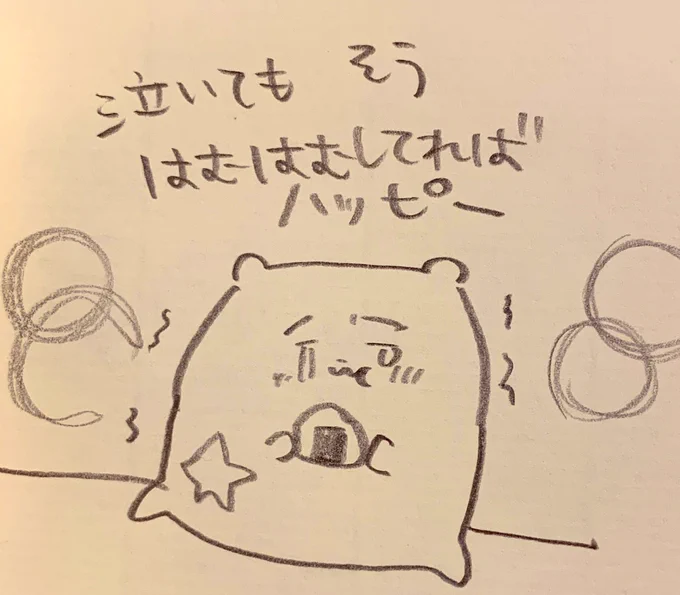 泣いても そう
はむはむしてれば
ハッピー